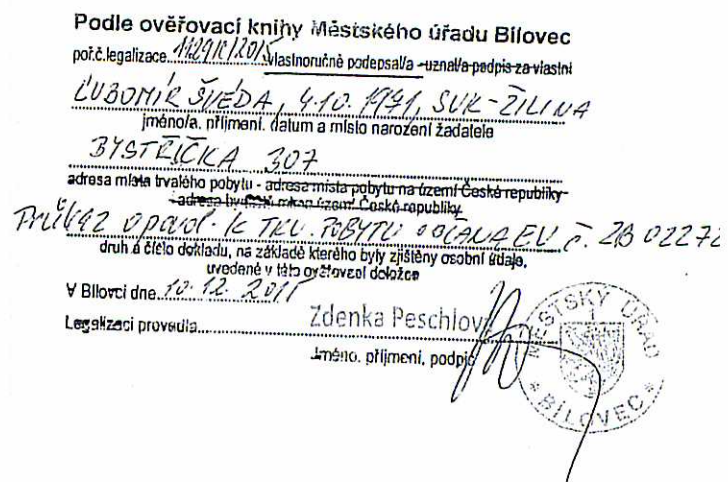 Podle ověřovací knihy Městského úřadu Bílovec
poř.č.legalizace vlastnoručně podepsal/a - uznal/a podpis za vlastní
ĽUBOMÍR ŠVEDA, 4.10. 1971, SVK-ŽILINA
jméno/a, příjmení, datum a místo narození žadatele
BYSTŘIČKA 307
adresa místa trvalého pobytu - adresa místa pobytu na území České republiky
- adresa bydliště mimo území České republiky
Průkaz o povol. k TRV. POBYTU OBČANA EU č. ZB 02272
druh a číslo dokladu, na základě kterého byly zjištěny osobní údaje,
uvedené v této ověřovací doložce
V Bílovci dne 10. 12. 2015
Legalizaci provedla Zdenka Peschlová
Jméno, příjmení, podpis
MĚSTSKÝ ÚŘAD
* BÍLOVEC *